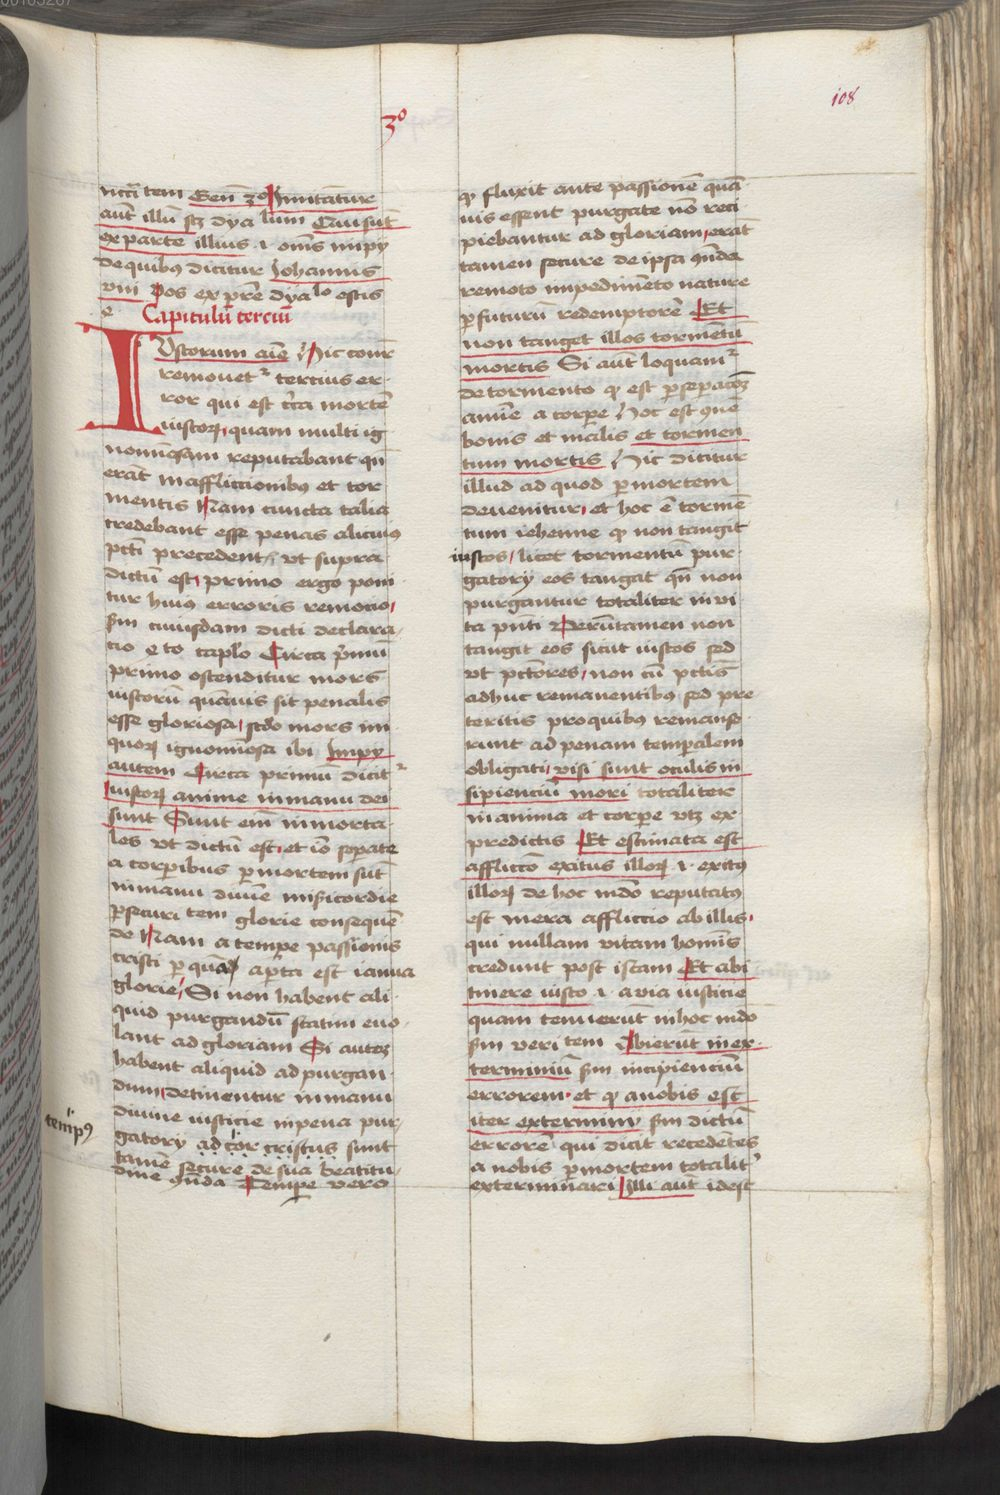 00103267
108
3º
uttātem Gen̄ 3º Imitātur
aut̄ illū scz dyalum Cauſ sūt
ex parte illius .i. om̄s impy
de quibꝰ dicitur Johannis
viii Vos ex pr̄e dyalo estis
Capitulū terciū
IVstorum aīe ꝛc̄ Hic
remouetᷣ tercius er
ror qui est c̄ca mortē
iustorꝝ, quam multi ig
nominiosam reputabant qn̄
erāt in afflictionibꝰ et tor
mentis Nam cuncta talia
credebant esse penas alicuiꝰ
pct̄i precedent̄ vt supra
dictū est, primo ergo poni
tur huiꝰ erroris remocio,
sm̄ cuiusdam dicti declara
cio e to caplo Circa pͥmū
primo ostenditur mors
iustorū quāuis sit penalis
esse gloriosa, scdo mors im
quorꝝ ignominiosa ibi Impy
autem Circa primū dicitᷣ
iustorꝝ anime in manu dei
sunt Sunt em̄ inmorta
les vt dictū est, et iō seperate
a corꝑibus ꝑ mortem sūt
in manu diuīe misericordie
ꝑ securitatem glorie consequē
de Nam a tempe passionis
cristi ꝑ quā aꝑta est ianua
glorie, Si non habent ali
quid purgandū statim euo
lant ad gloriam Si autem
habent aliquid ad purgan
dum, detinentur in manu
diuine iusticie in pena pur
gatory ad cor cristus sunt
tempꝰ
tamē secure de sua beatitu
dine hn̄da Tempe vero
qͥ fluxit ante passionē quā
uis essent purgate nō reci
piebantur ad gloriam, erāt
tamen secure de ipsa hn̄da
remoto impedimēto nature
ꝑ futurū redemptorē Et
non tanget illos tormentū
mortis Si aut̄ loquamᷣ
de tormento qͥ est ꝑ seꝑacōꝫ
anīe a corꝑe Hoc est
bonis et malis et tormen
tum mortis Hic dicitur
illud ad quod ꝑ mortem
deuenitur, et hoc ē tormē
tum iehenne qͥ non tangit
iustos, licet tormentū pur
gatory eos tangat qn̄ non
purgantur totaliter in vi
ta pn̄ti Verūtamen non
tangit eos sicut iustos sed
vt pctōres, non cū pctīs
adhuc remanentibꝰ sed pre
teritis pro quibꝰ remanse
runt ad penam temꝑalem
obligati, visi sunt oculis in
sipienciū mori totaliter
in anima et corꝑe vtz ex
predictis Et estimata est
afflictio exitus illorꝝ .i. exitꝰ
illorꝝ de hoc mdo reputatꝰ
est mera afflictio ab illis,
qui nullam vitam hominis
credunt post istam Et abi
tinere iusto .i. a via iusticie
quam tenuerut in hoc mdo
sm̄ veritatem Abierūt in ex
terminiū sm̄ incipienciū
errorem, et qͥ a nobis est
iter exterminy sm̄ dictū
errorē qui dicit recedetes
a nobis ꝑ mortem totalitᷣ
exterminari Illi aut̄ idest